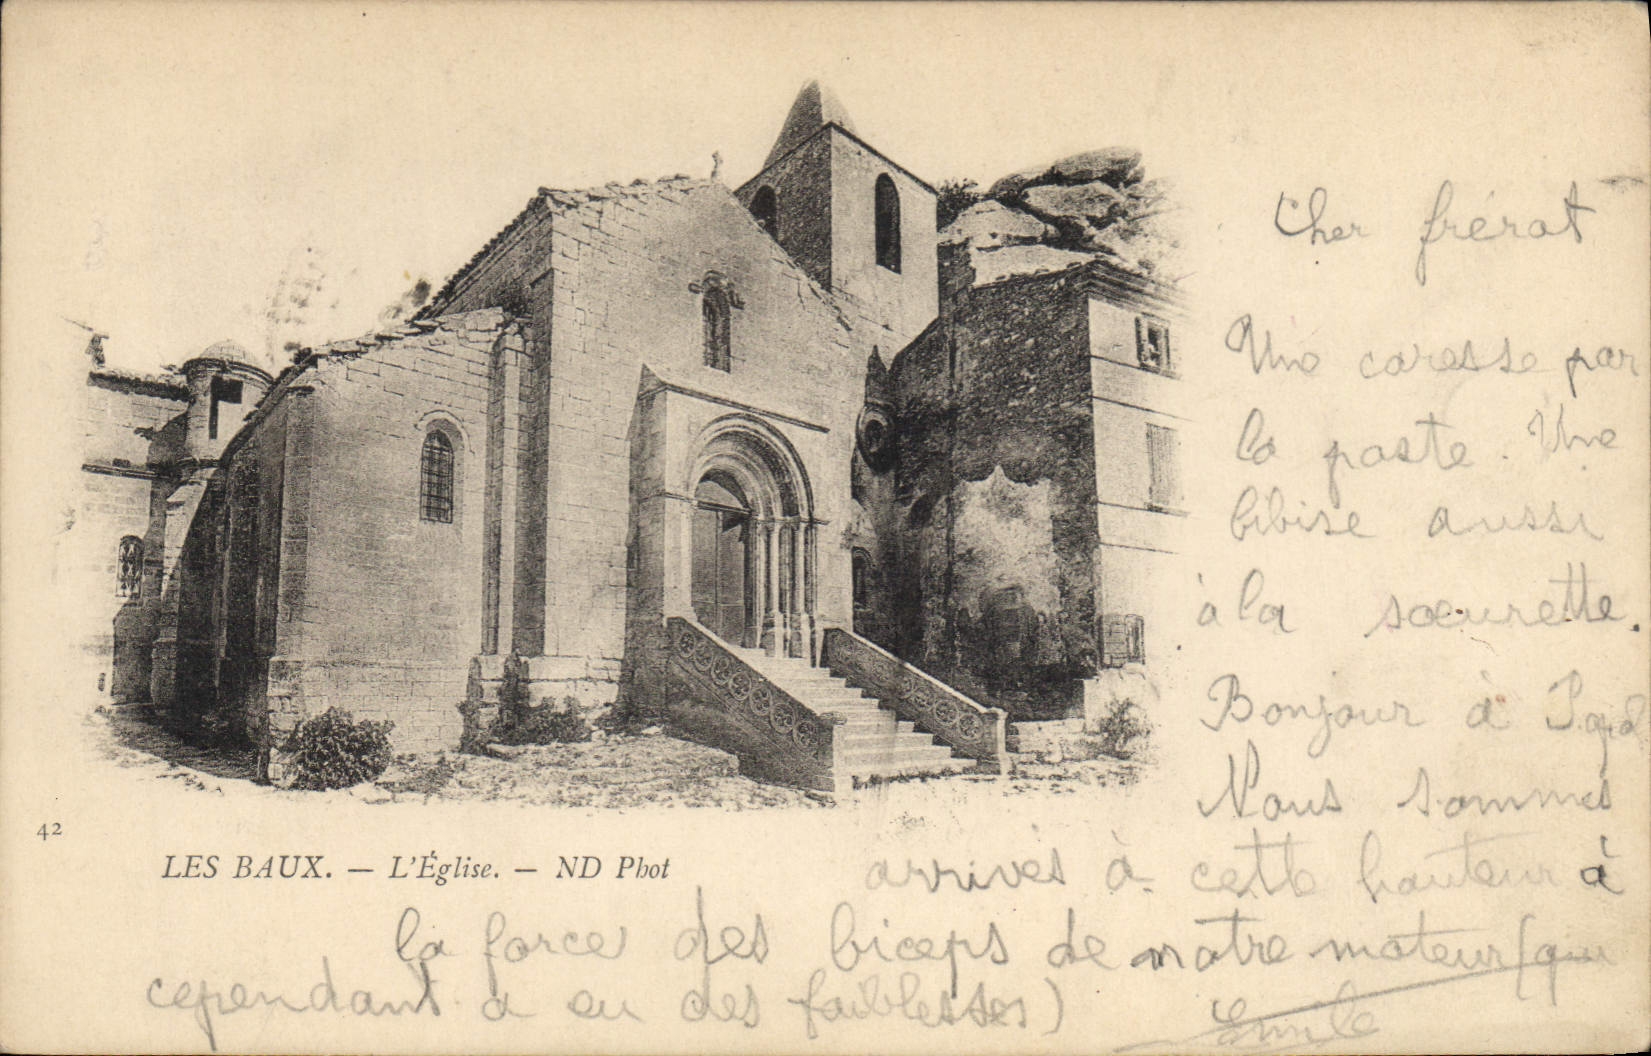 Cher frérot
Une caresse par
la poste. Une
bibise aussi
à la sœurette.
Bonjour à
Nous sommes
42
LES BAUX. — L'Église. — ND Phot
arrivés à cette hauteur à
la force des biceps de notre moteur (qui
cependant a eu des faiblesses)
Emile